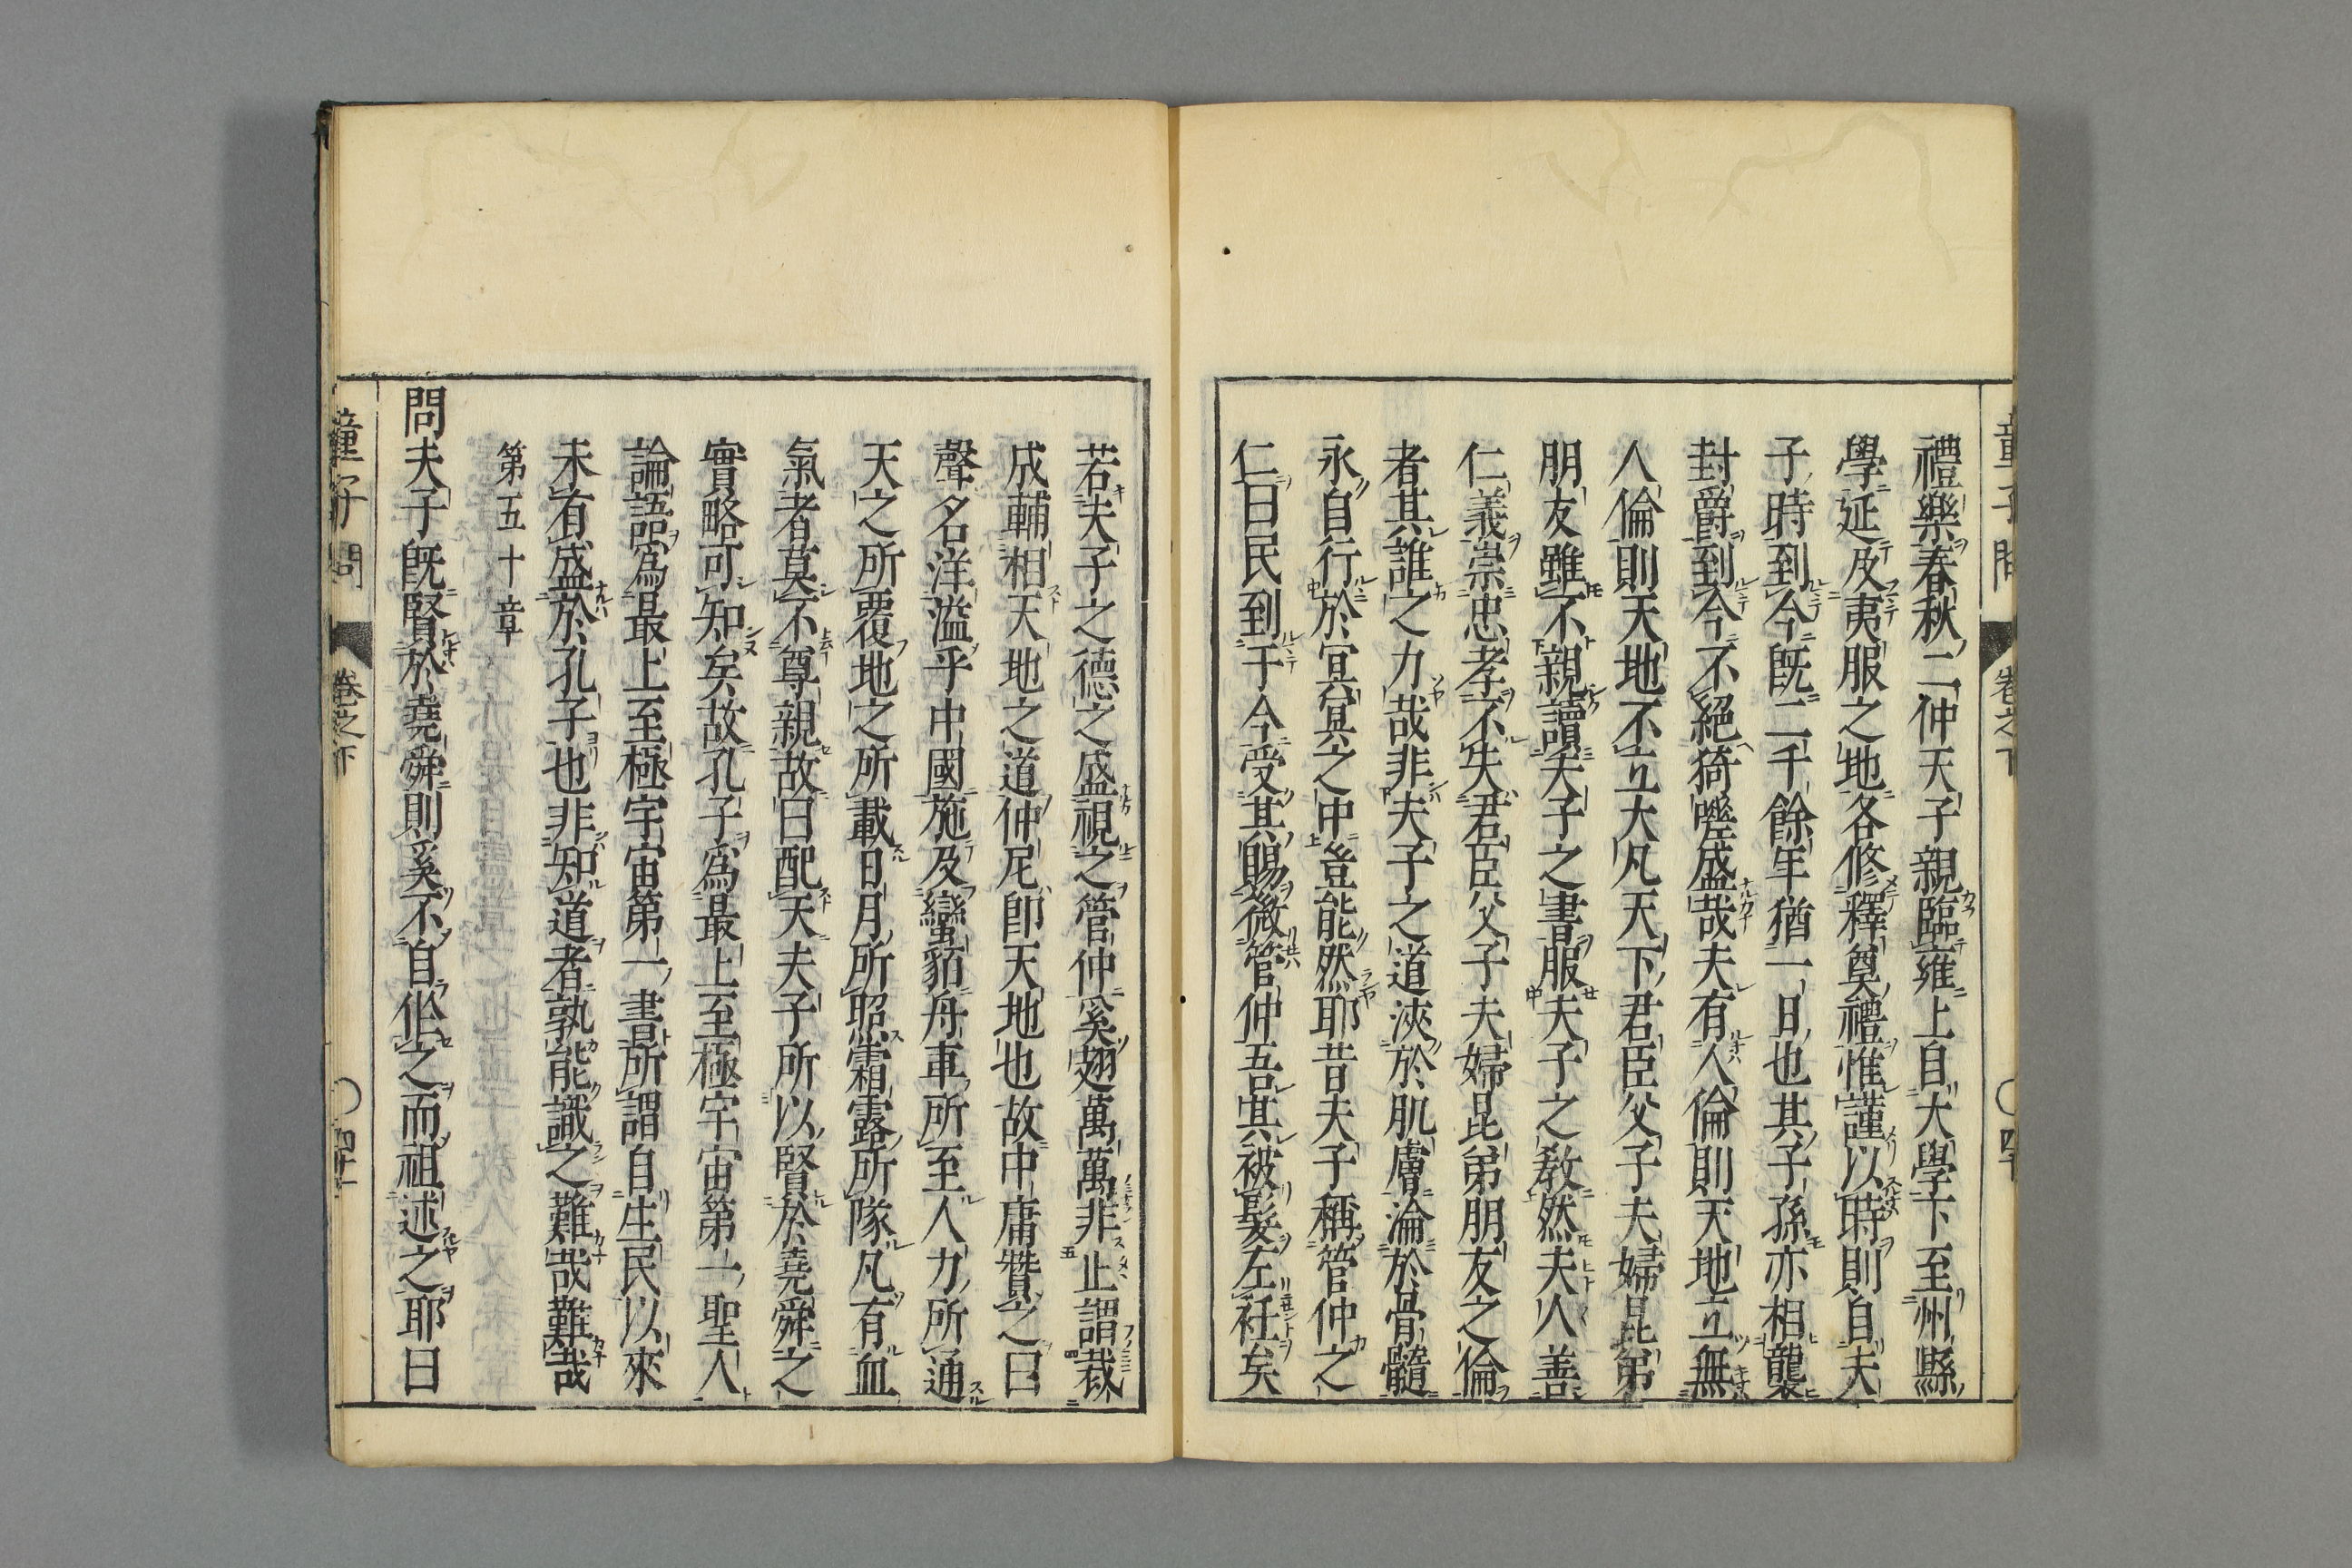 禮樂春秋二仲天子親臨雍上自大學下至州縣
學延及夷服之地各修釋奠禮惟謹以時則自夫
子時到今既二千餘年猶一日也其子孫亦相襲
封爵到今不絕猗嗟盛哉夫有人倫則天地立無
人倫則天地不立大凡天下君臣父子夫婦昆弟
朋友雖不親讀夫子之書服夫子之教然夫人善
仁義崇忠孝不失君臣父子夫婦昆弟朋友之倫
者其誰之力哉非夫子之道浹於肌膚淪於骨髓
永自行於冥冥之中豈能然耶昔夫子稱管仲之
仁曰民到于今受其賜微管仲吾其被髮左衽矣
若夫子之德之盛視之管仲奚翅萬萬非止謂裁
成輔相天地之道仲尼卽天地也故中庸贊之曰
聲名洋溢乎中國施及蠻貊舟車所至人力所通
天之所覆地之所載日月所照霜露所隊凡有血
氣者莫不尊親故曰配天夫子所以賢於堯舜之
實略可知矣故孔子爲最上至極宇宙第一聖人
論語爲最上至極宇宙第一書所謂自生民以來
未有盛於孔子也非知道者孰能識之難哉難哉
第五十章
問夫子既賢於堯舜則奚不自作之而祖述之耶曰
童子問 卷之下